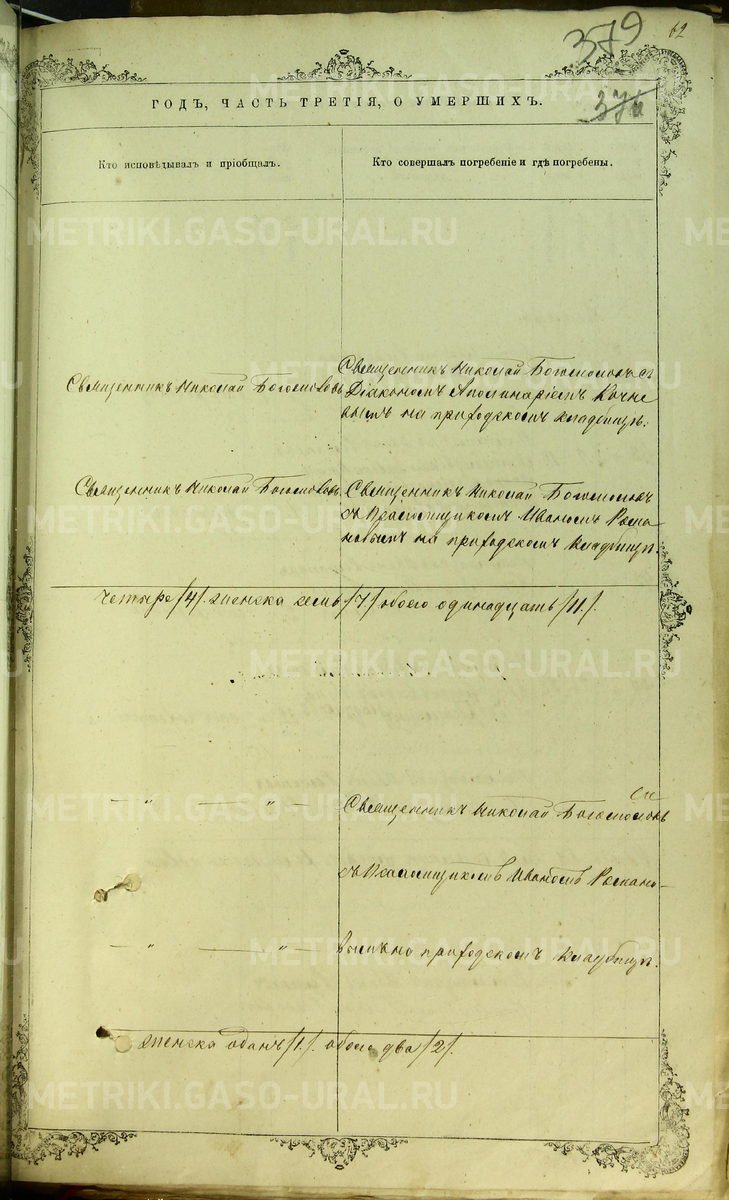 379
62
376
ГОДЪ, ЧАСТЬ ТРЕТІЯ, О УМЕРШИХЪ.
Кто исповѣдывалъ и пріобщалъ.
Кто совершалъ погребеніе и гдѣ погребены.
Священникъ Николай Богословъ
Священникъ Николай Богословъ съ
Діакономъ Аполинаріемъ Кочне
вымъ на приходскомъ кладбищѣ.
Священникъ Николай Богословъ
Священникъ Николай Богословъ
съ Псаломщикомъ Иваномъ Рома
новымъ на приходскомъ кладбищѣ
четыре /4/. женска семь /7/ обоего одинадцать /11/.
Священникъ Николай Богословъ
съ Псаломщикомъ Иваномъ Романо-
вымъ на приходскомъ кладбищѣ.
женска одинъ /1/. обоего два /2/.
METRIKI.GASO-URAL.RU